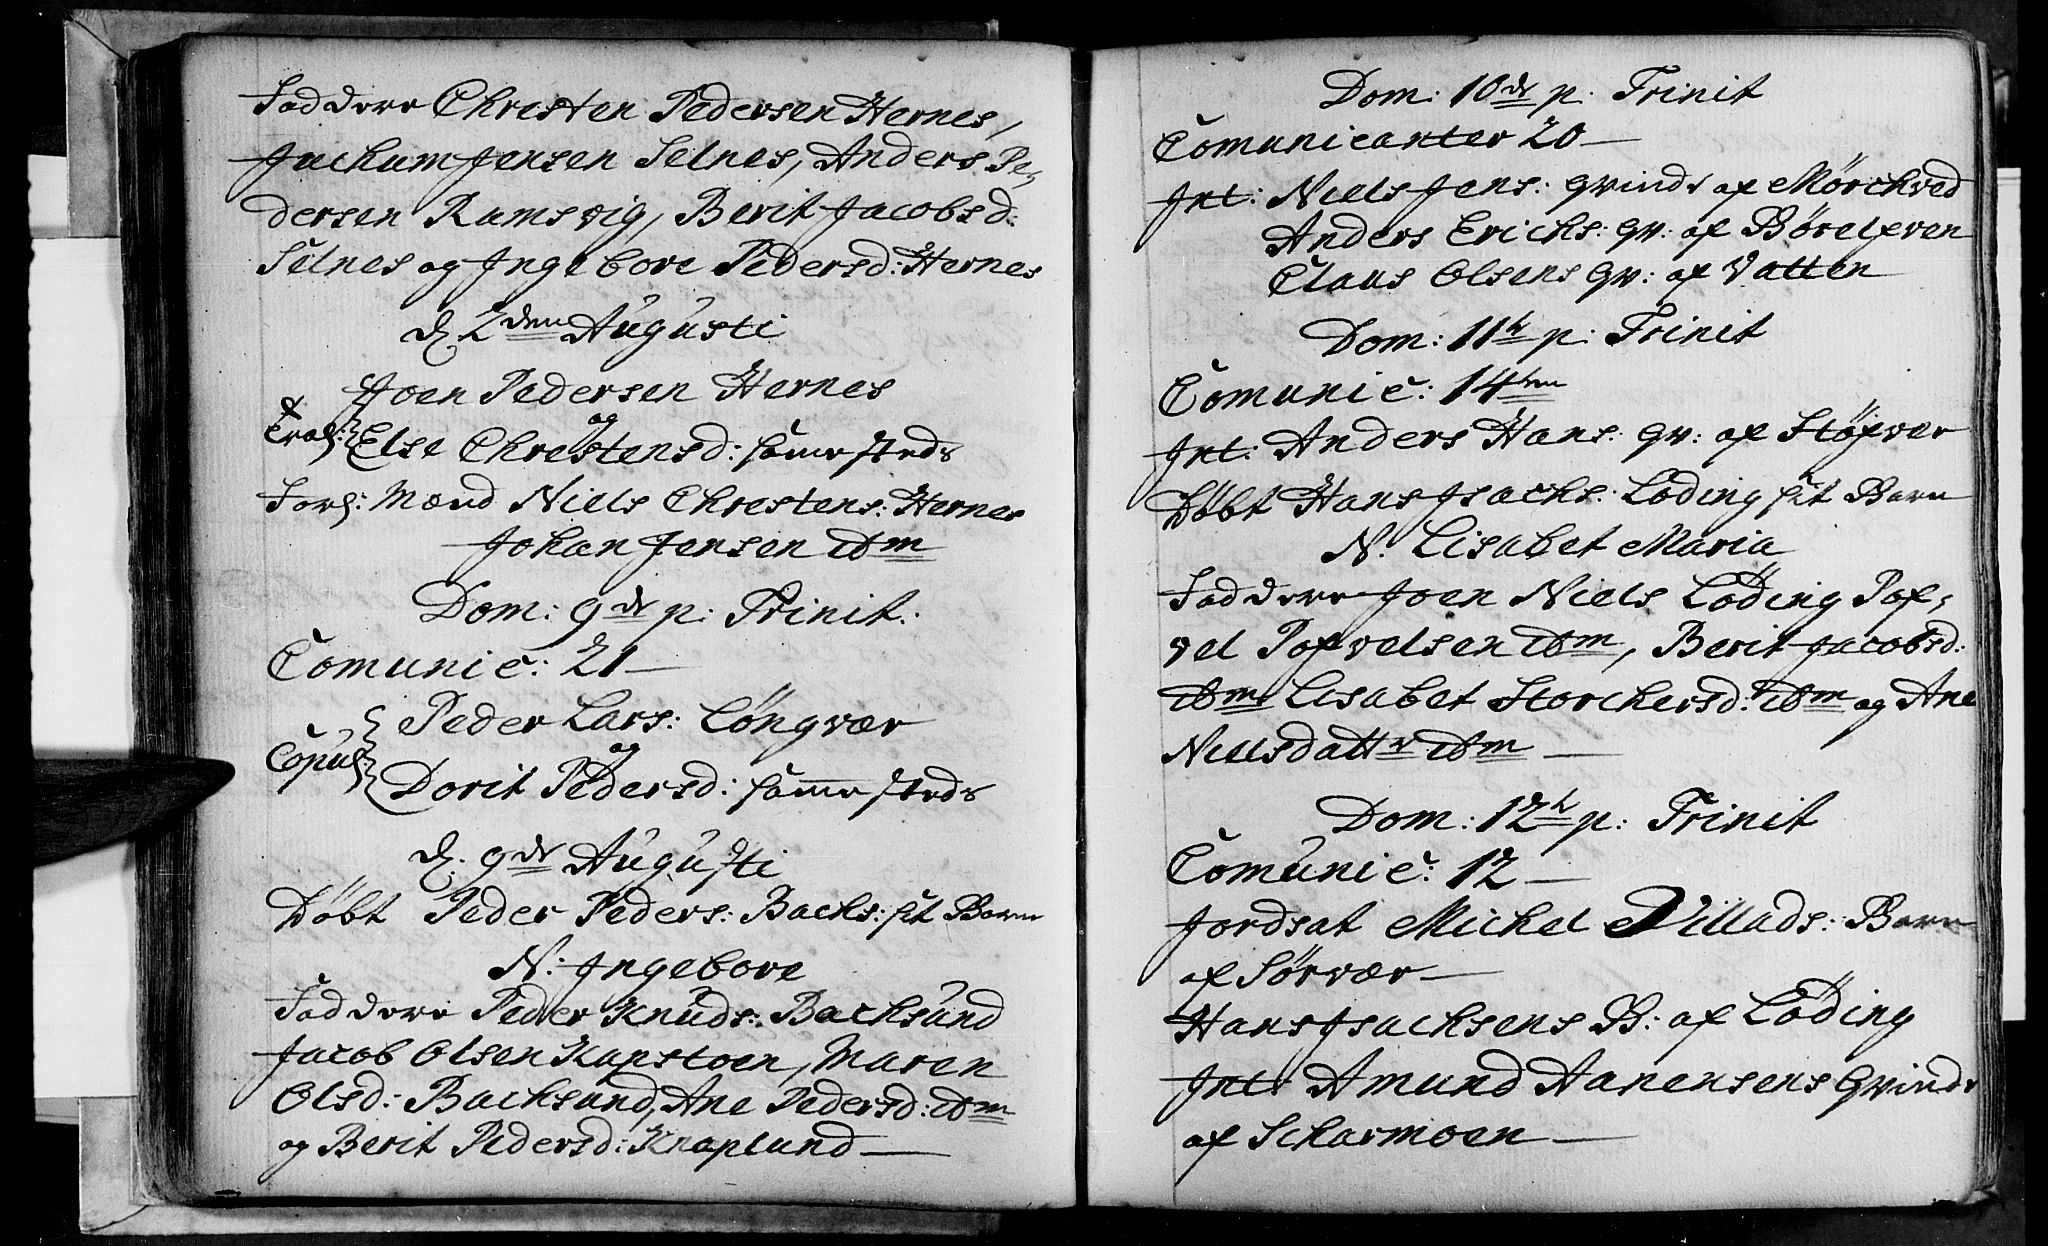 Faddere Christen Pedersen Hernes,
Jachum Jensen Selnes, Anders Pe-
dersen Ramsvig, Berit Jacobsd:
Selnes og Ingebore Pedersd: Hernes
d. 2den Augusti
Joen Pedersen Hernes
og
Trol: Else Chrestensd: samme steds
Forl: Mænd Niels Chrestens: Hernes
Johan Jensen ibm
Dom: 9de p: Trinit:
Comunic: 21 —
Peder Lars: Löngvær
og
Copul: Dorit Pedersd: samme steds
d. 9de Augusti
Döbt Peder Peders: Bachs: sit Barn
N: Ingebore
Faddere Peder Knuds: Bachsund
Jacob Olsen Kapstoen, Maren
Olsd: Bachsund, Ane Pedersd: ibm
og Berit Pedersd: Knaplund —
Dom: 10de p: Trinit
Comunicanter 20 —
Int: Niels Jens: Qvinde af Mörchved
Anders Erichs: Qv: af Börelfven
Claus Olsens Qv: af Vatten
Dom: 11te p: Trinit
Comunic: 14ten
Int: Anders Hans: Qv: af Stöfvær
Döbt Hans Isachs: Löding sit Barn
N. Lisabet Maria
Faddere Joen Niels Löding Pof-
vel Pofvelsen ibm, Berit Jacobsd:
ibm Lisabet Storchersd: ibm og Ane
Nielsdattr ibm —
Dom: 12te p: Trinit
Comunic: 12 —
Jordsat Michel Villads: Barn
af Sörvær —
Hans Isachsens B: af Löding
Int: Amund Aanensens Qvinde
af Scharmoen —